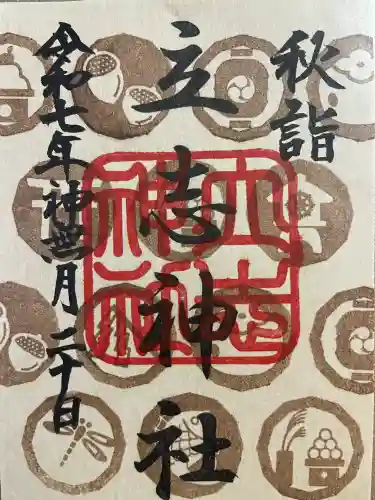 秋詣
立志神社
令和七年神無月二十日
立志神社